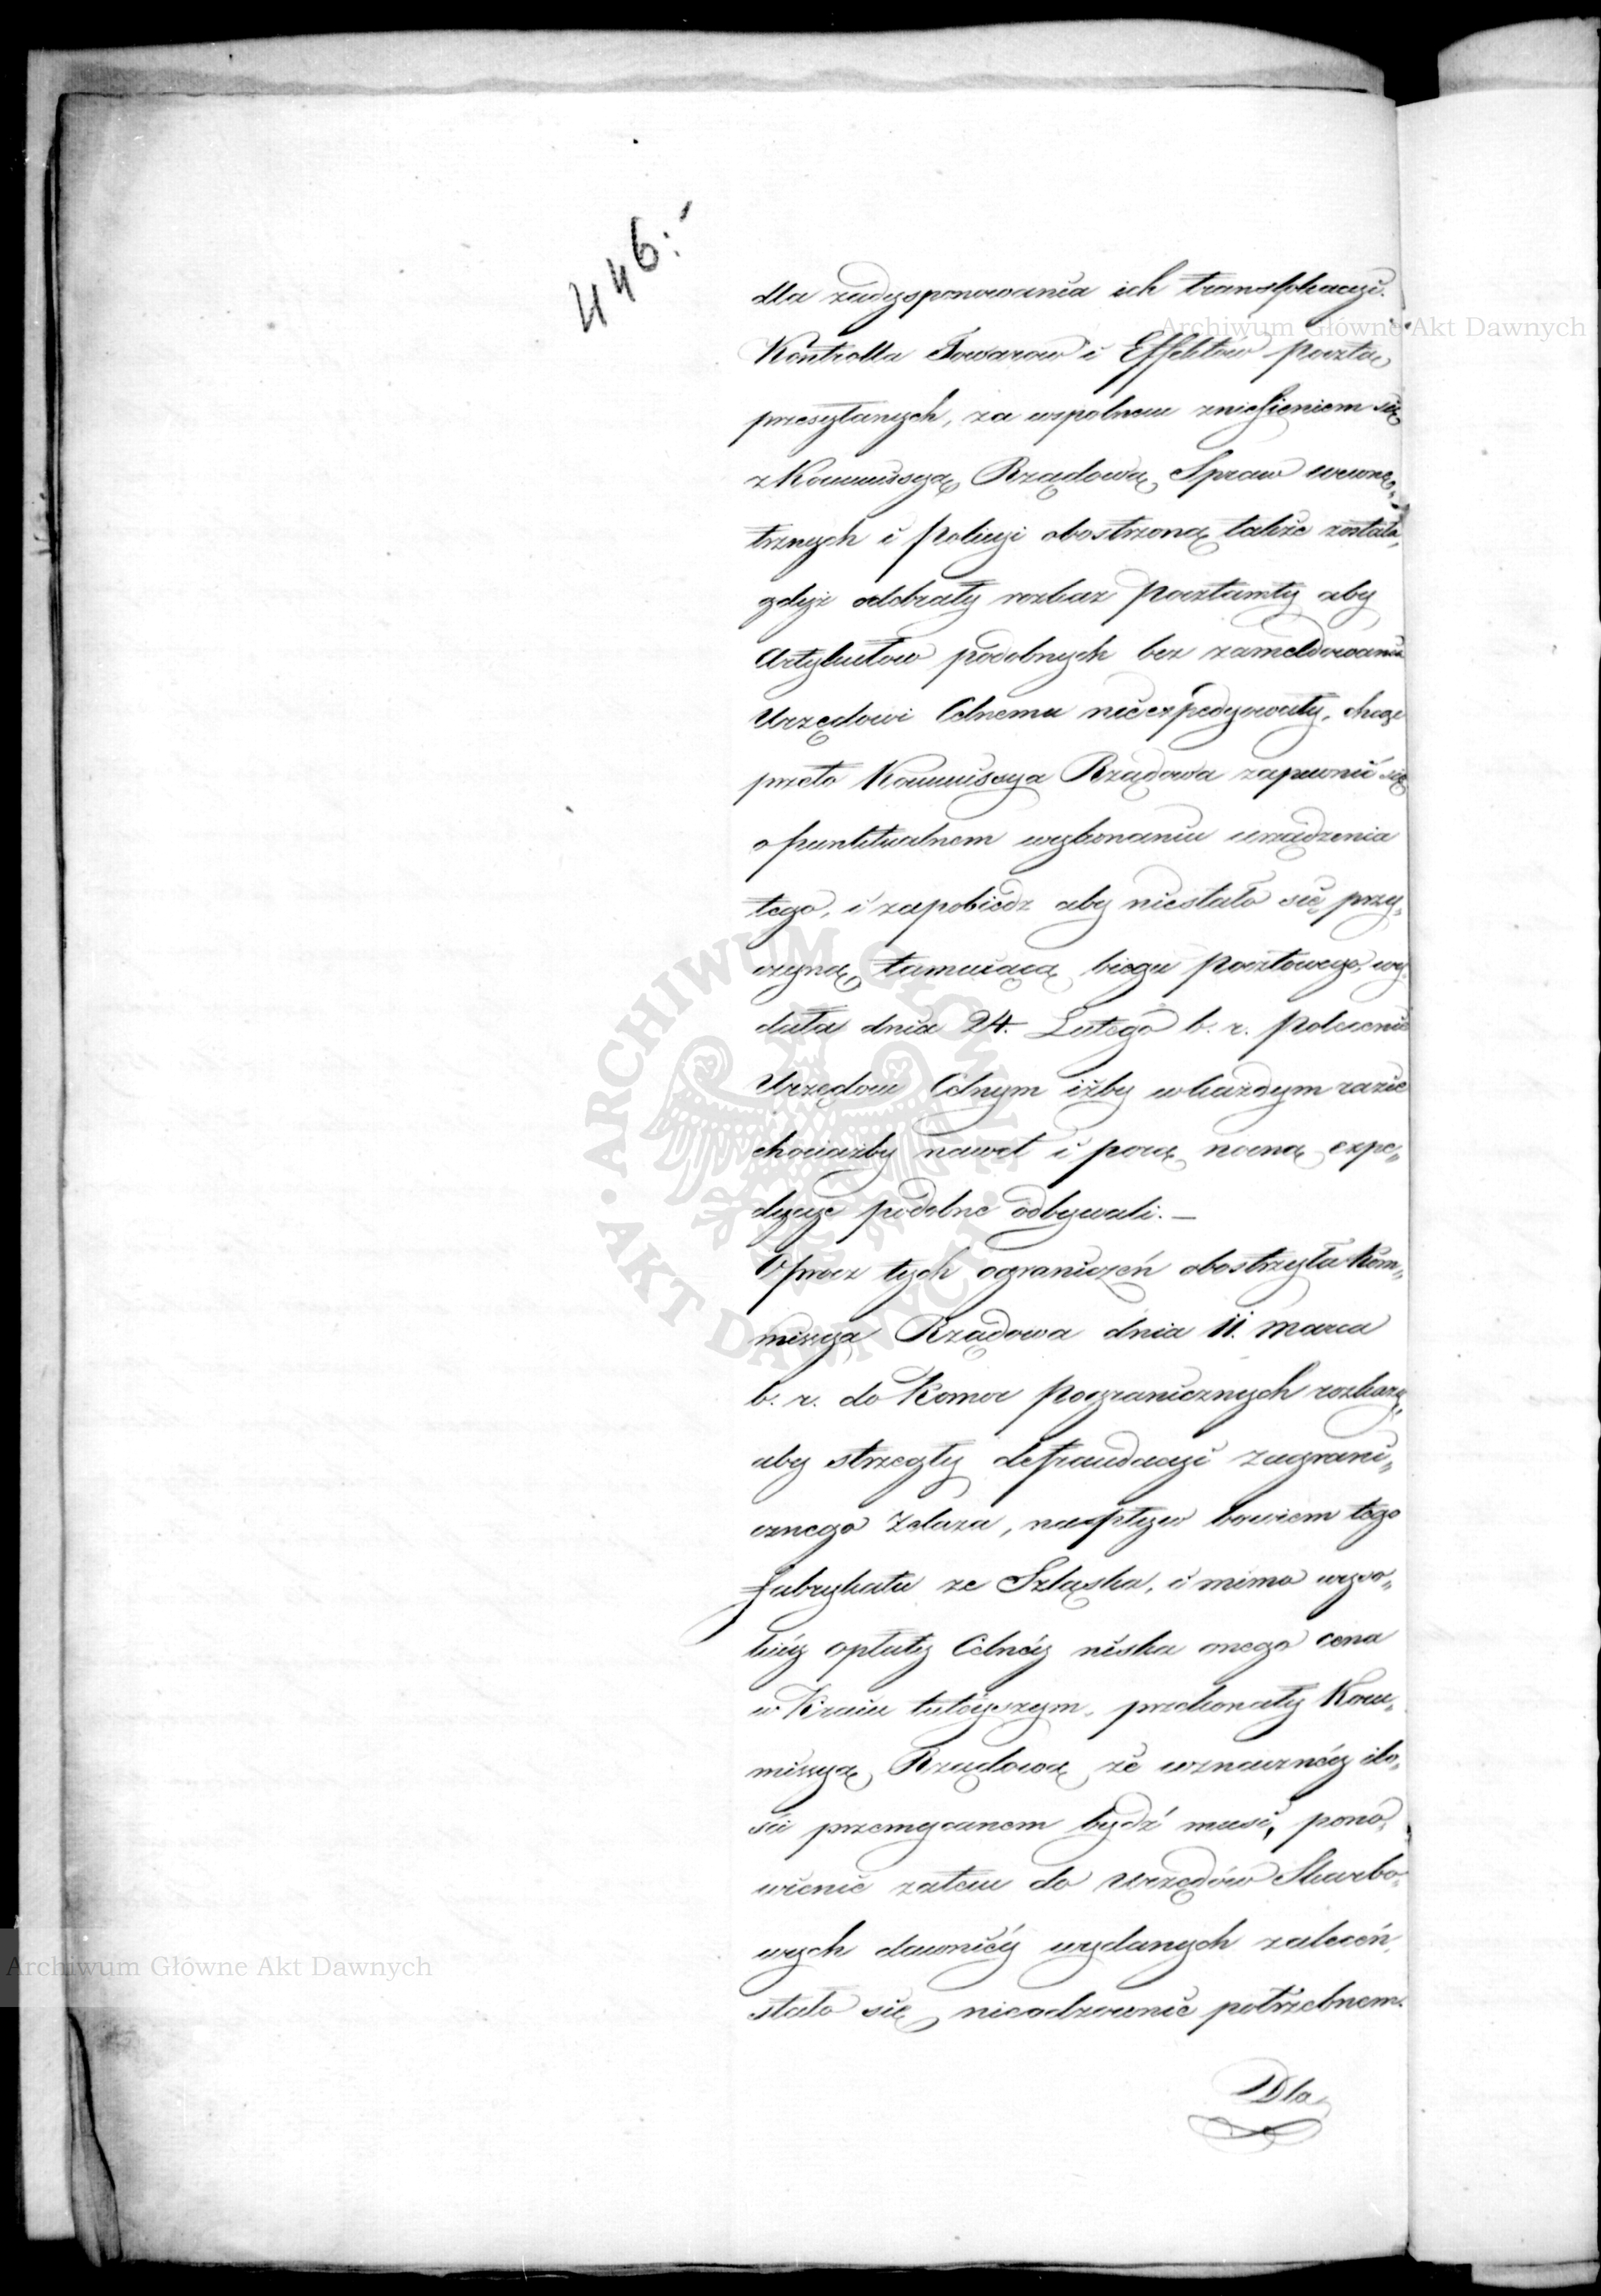 446.
dla zadysponowania ich translokacyi.
Kontrolla Towarow i Effektów pocztą
przesyłanych, za wspolnem zniesieniem się
z Kommissyą Rządową Spraw wewnę„
trznych i Policyi obostrzoną także została,
gdyż odebrały rozkaz Pocztamty aby
Artykułow podobnych bez zameldowania
Urzędowi Celnemu nieexpedyowały, chcąc
przeto Kommissya Rządowa zapewnić się
o punktualnem wykonaniu urządzenia
tego, i zapobiedz aby niestało się przy„
czyną tamuiącą biegu pocztowego, wy„
dała dnia 24. Lutego b. r. Polecenie
Urzędom Celnym iżby w każdym razie
chociażby nawet i porą nocną expe„
dycye podobne odbywali. —
Oprocz tych ograniczeń obostrzyła Kom„
missya Rządowa dnia 11. Marca
b. r. do Komor Pogranicznych rozkazy,
aby strzegły defraudacyi zagrani„
cznego Żelaza, napływ bowiem tego
fabrykatu ze Szląska, i mimo wyso„
kiéy opłaty Celnéy niska onego cena
w Kraiu tuteyszym, przekonały Kom„
missyą Rządową że w znacznéy ilo„
ści przemycanem bydź musi, pono„
wienie zatem do Urzędów Skarbo„
wych dawniéy wydanych zaleceń,
stało się nieodzownie potrzebnem.
Dla
Archiwum Główne Akt Dawnych
Archiwum Główne Akt Dawnych
ARCHIWUM GŁÓWNE AKT DAWNYCH